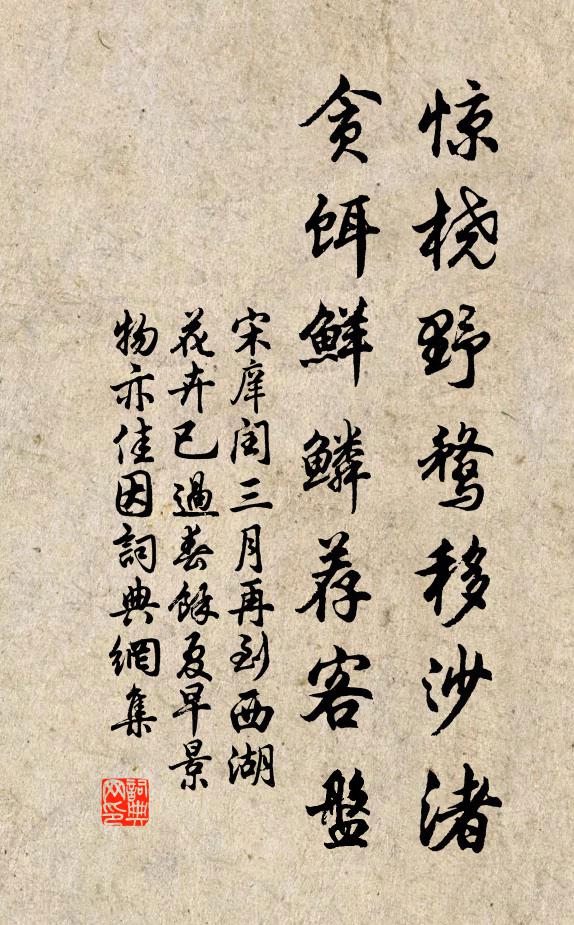 惊桡野鹜移沙渚
贪饵鲜鳞荐客盤
宋庠闰三月再到西湖
花卉已過春餘夏早景
物亦佳因詞典網集
詞典网印